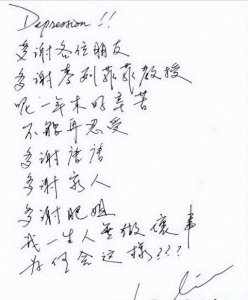 Depression !!
多謝各位朋友
多謝李列菲菲教授
呢一年來的辛苦
不能再忍受
多謝唐唐
多謝家人
多謝肥姐
我一生人無做壞事
為何會这樣???